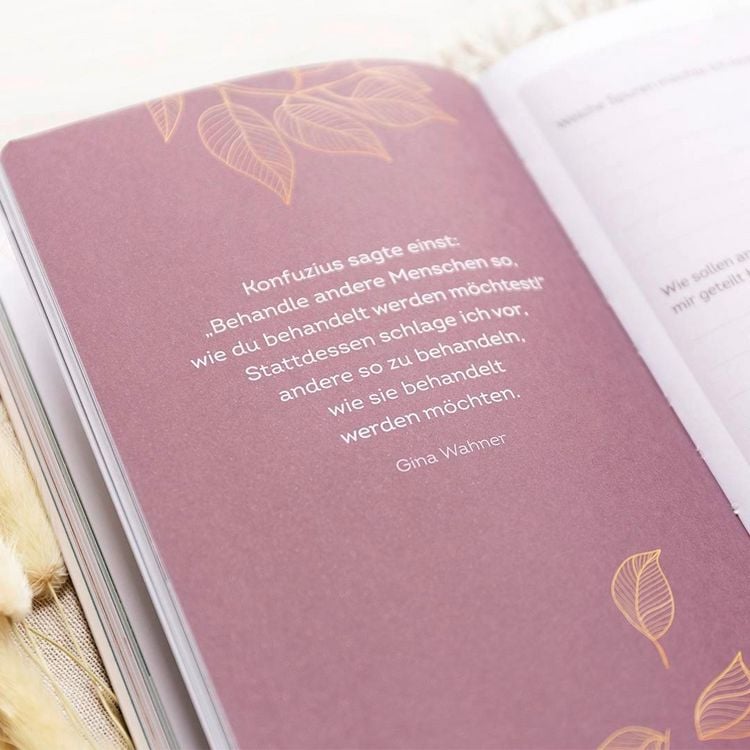 Konfuzius sagte einst:
„Behandle andere Menschen so,
wie du behandelt werden möchtest!“
Stattdessen schlage ich vor,
andere so zu behandeln,
wie sie behandelt
werden möchten.
Gina Wahner
Welche Spuren möchte ich
Wie sollen
mir geteilt